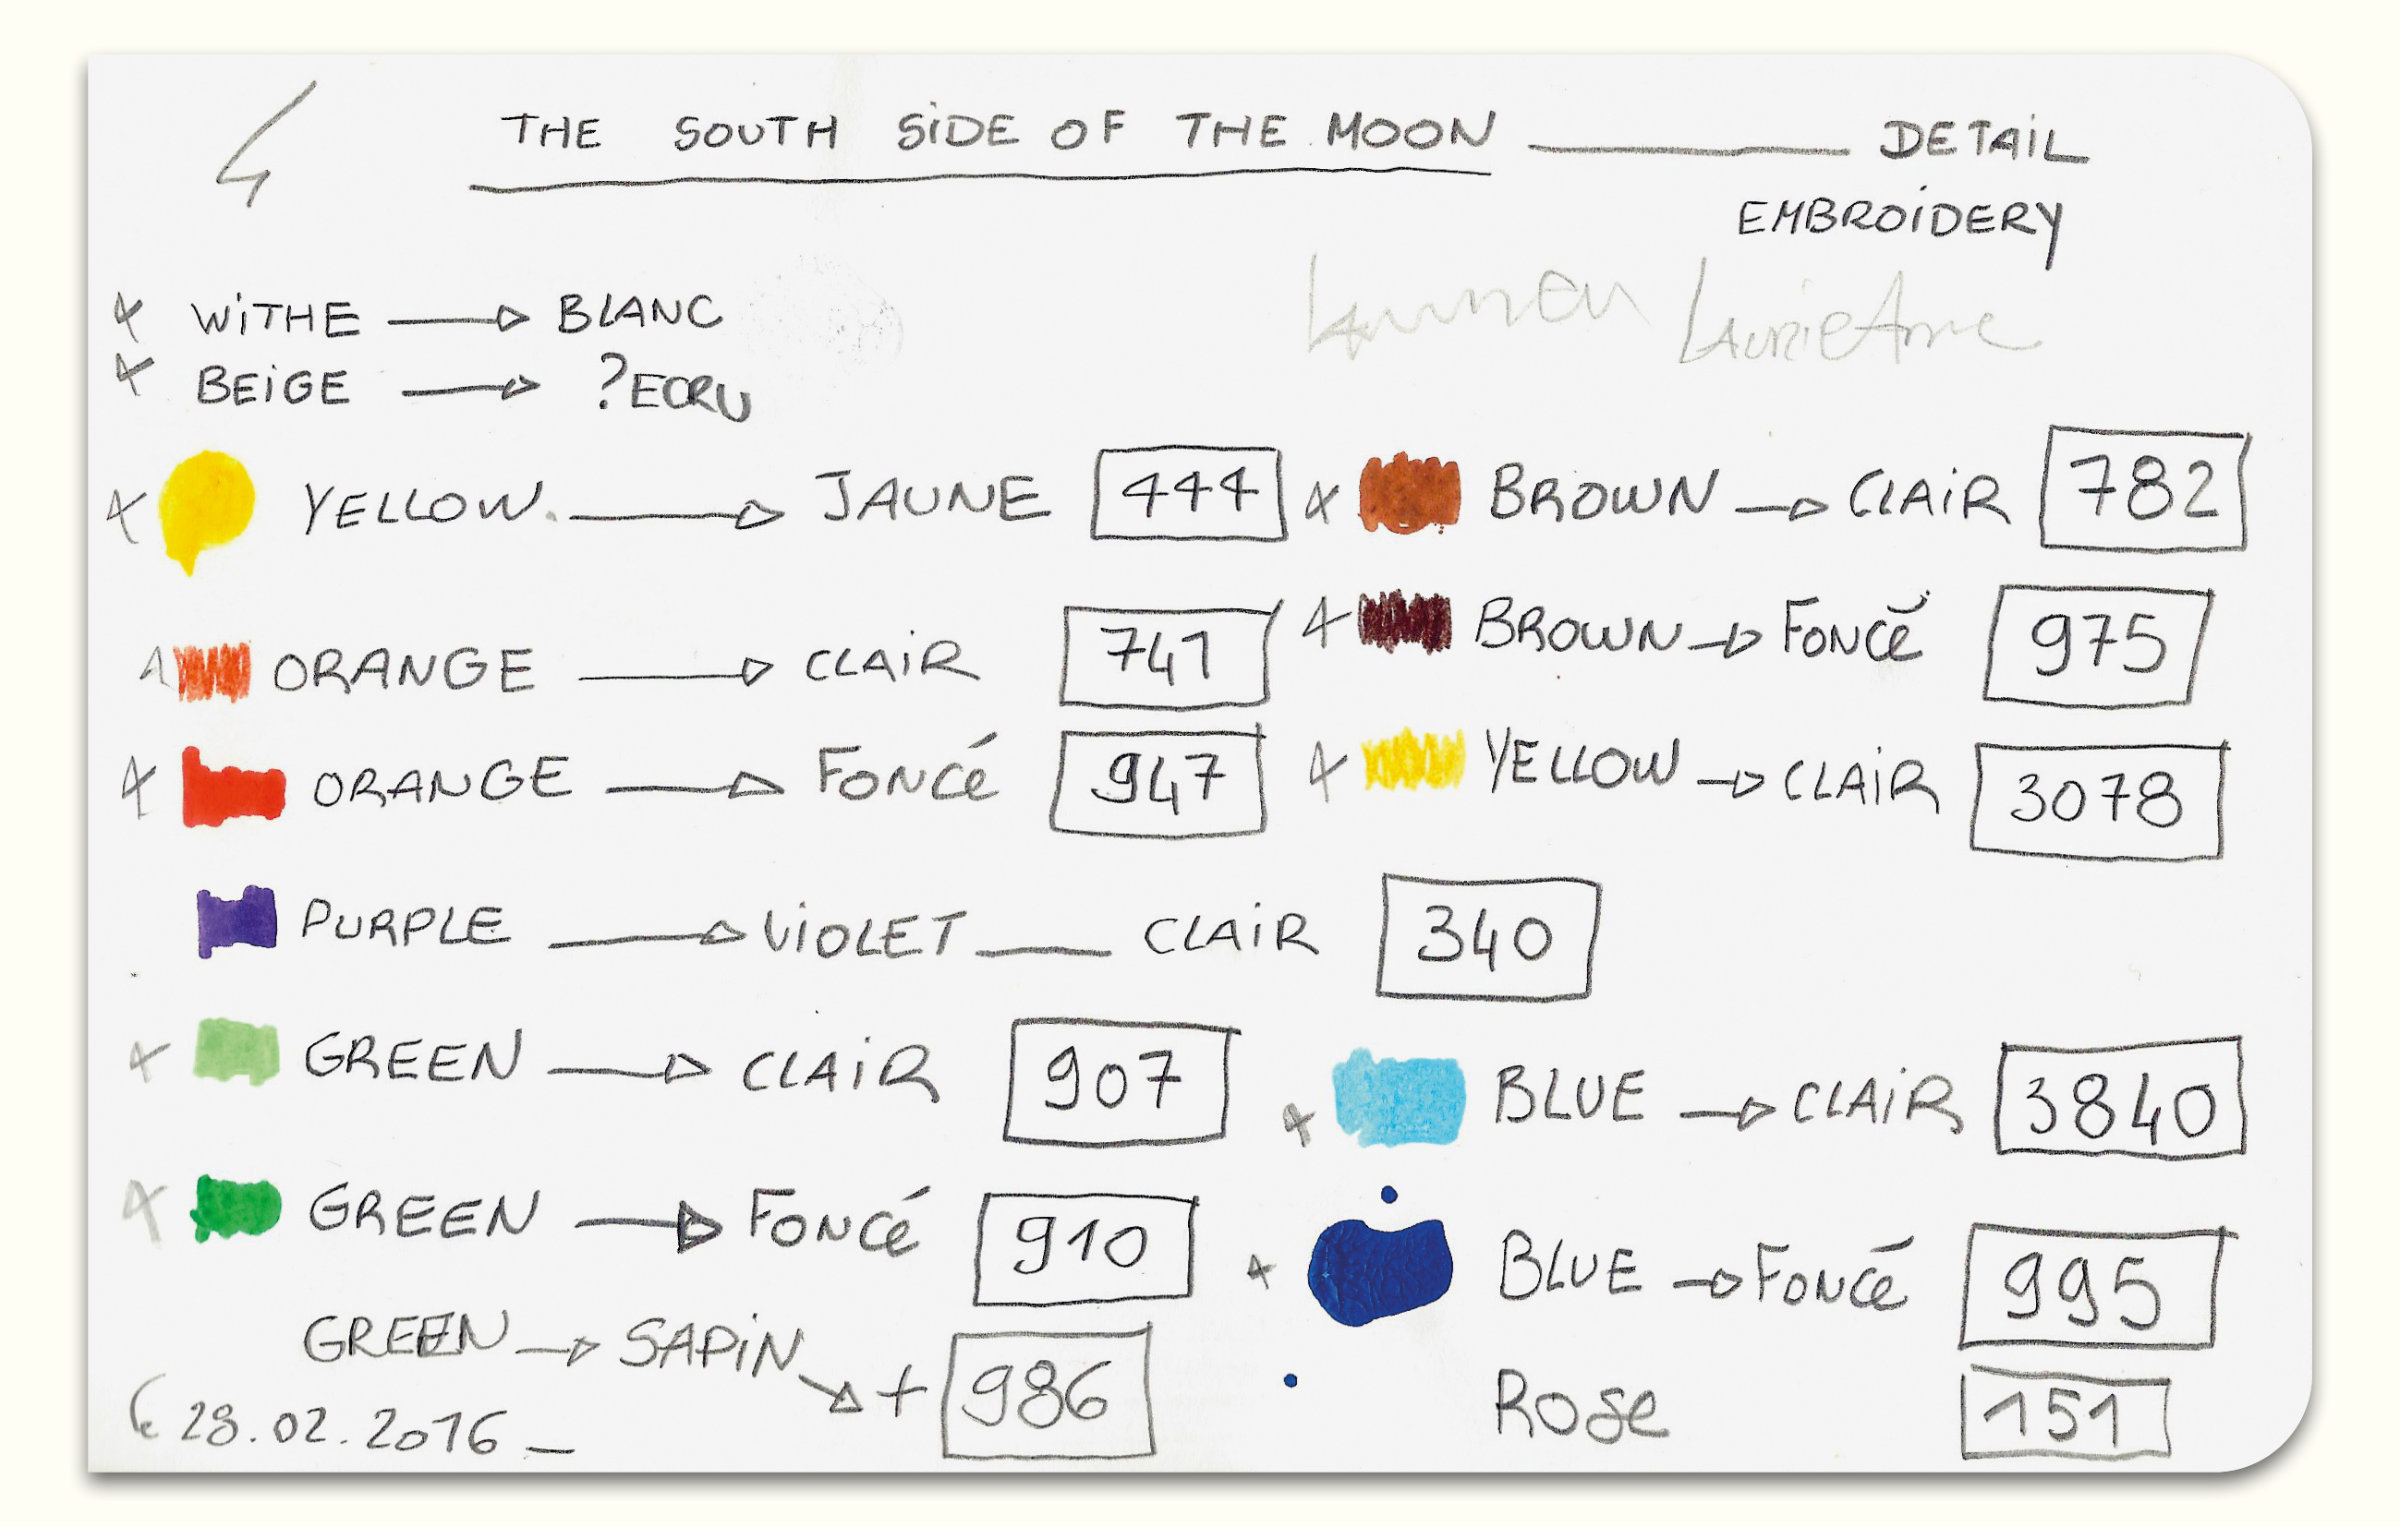 4
THE SOUTH SIDE OF THE MOON — DETAIL
EMBROIDERY
LaurieAnne
x WITHE → BLANC
x BEIGE → ?ECRU
x YELLOW → JAUNE 444
x BROWN → CLAIR 782
ORANGE → CLAIR 741
x BROWN → FONCÉ 975
x ORANGE → FONCÉ 947
x YELLOW → CLAIR 3078
PURPLE → VIOLET — CLAIR 340
x GREEN → CLAIR 907
x BLUE → CLAIR 3840
x GREEN → FONCÉ 910
x BLUE → FONCÉ 995
GREEN → SAPIN → + 986
ROSE 151
Le 28.02.2016 _